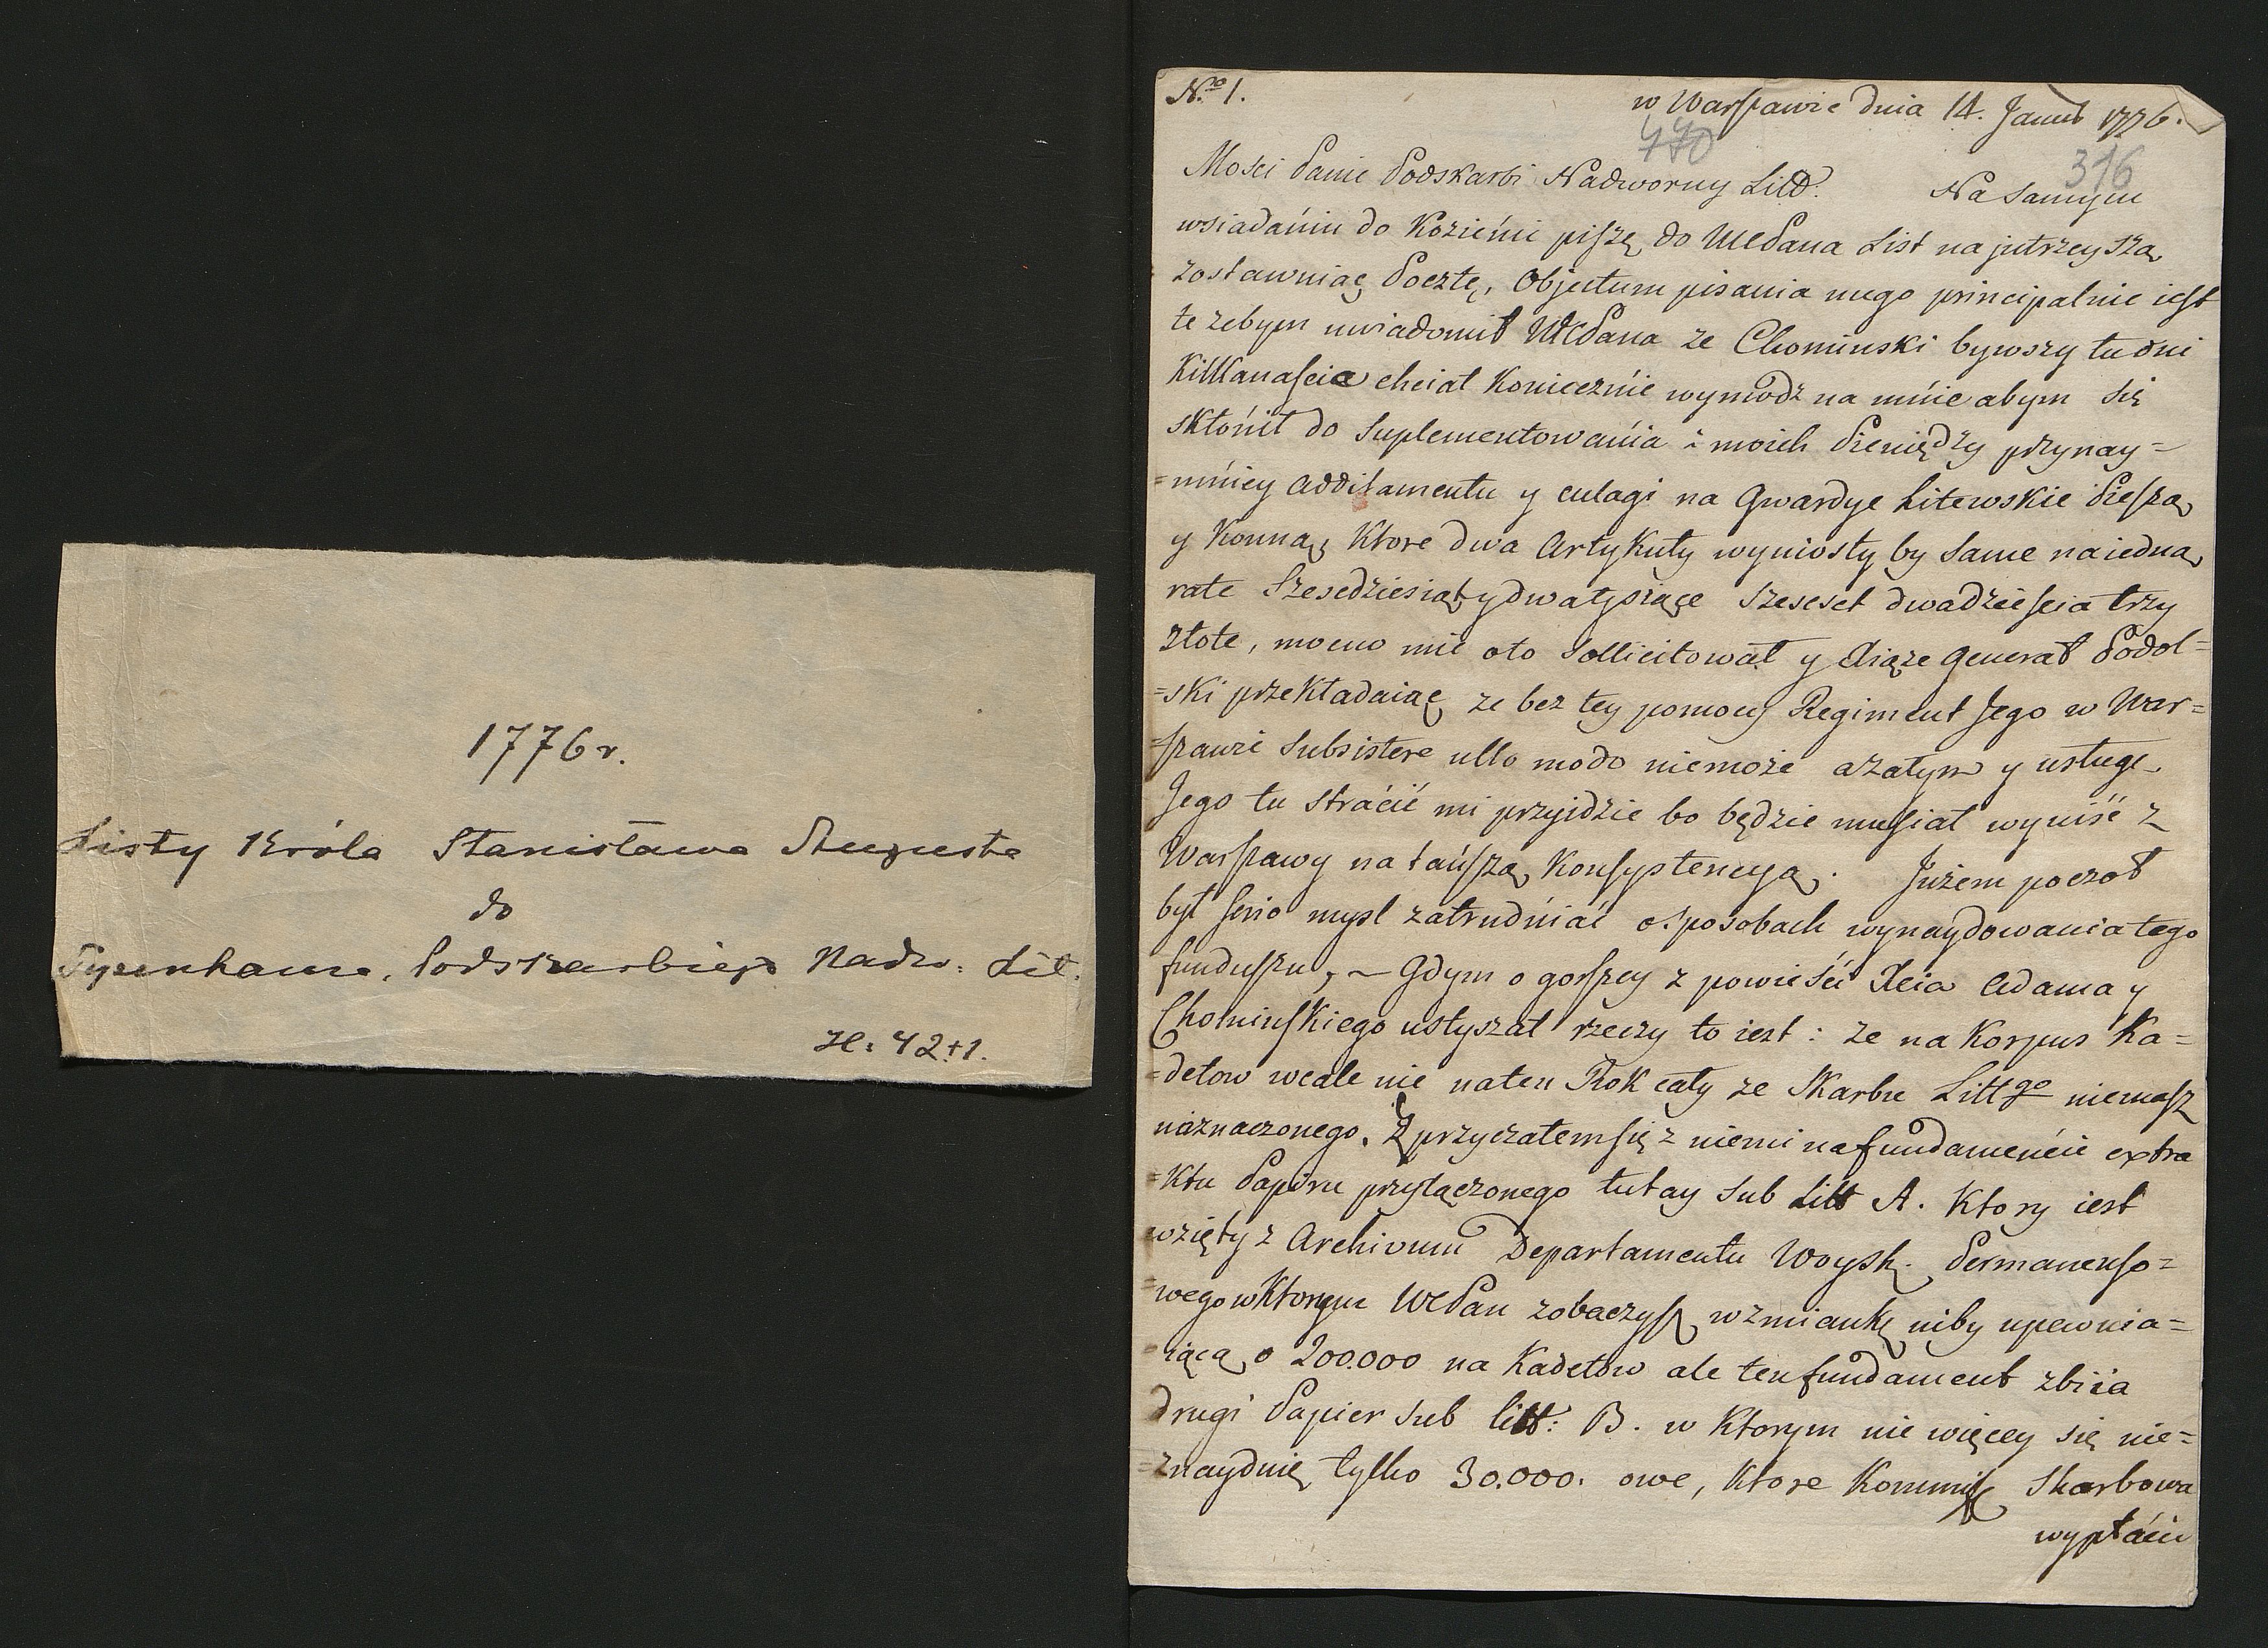 1776 r.
Listy Króla Stanisława Augusta
do
Tyzenhauza, Podskarbiego Nadw: Lit.
42+1.
N.ro 1.
w Warszawie dnia 14. Januar 1776.
470
316
Mosci Panie Podskarbi Nadworny Litt. Na samym
wsiadániu do Kozienic piszę do WCPana List na jutrzeyszą
zostawuiąc Pocztę, Objectum pisania mego principalnie iest
te zebym uwiadomił WCPana ze Chominski bywszy tu dni
Kilkanascie chciał Koniecznie wymodz na mnie abym się
skłonił do Suplementowania z moich Pieniędzy przynay=
=mniey additamentu y culagi na Gwardye Litewskie Pieszą
y Konną, Ktore dwa Artykuły wyniosły by same na iedną
rate Szescdziesiąt y dwa tysiące szescset dwadziescia trzy
złote, mocno mie oto sollicitował y Xiąze General Podol=
=ski przekładaiąc ze bez tey pomocy Regiment Jego w War=
=szawie Subsistere ullo modo niemoże azatym y usługe
Jego tu stracić mi przyidzie bo będzie musiał wyniść z
Warszawy na tańszą Konsystencyą. Juzem poczoł
był serio mysl zatrudniać o sposobach wynaydowania tego
funduszu, ~ Gdym o gorszey z powieści Xcia Adama y
Chominskiego usłyszał rzeczy to iest: ze na Korpus Ka=
=detow wcale nie na ten Rok cały ze Skarbu Littgo niemasz
naznaczonego. Zprzyczałem się z niemi na fundamencie extra
=Ktu Papiru przyłączonego tutay sub Litt A. Ktory iest
wzięty z Archivum Departamentu Woysk. Permanenso=
=wego w Ktorym WCPan zobaczysz wzmiankę niby upewnia=
=iącą o 200.000 na Kadetow ale ten fundament zbiia
drugi Papier sub litt: B. w Ktorym nie więcey się nie=
=znayduię tylko 30.000. owe, Ktore Kommiss Skarbowa
wypłáciu